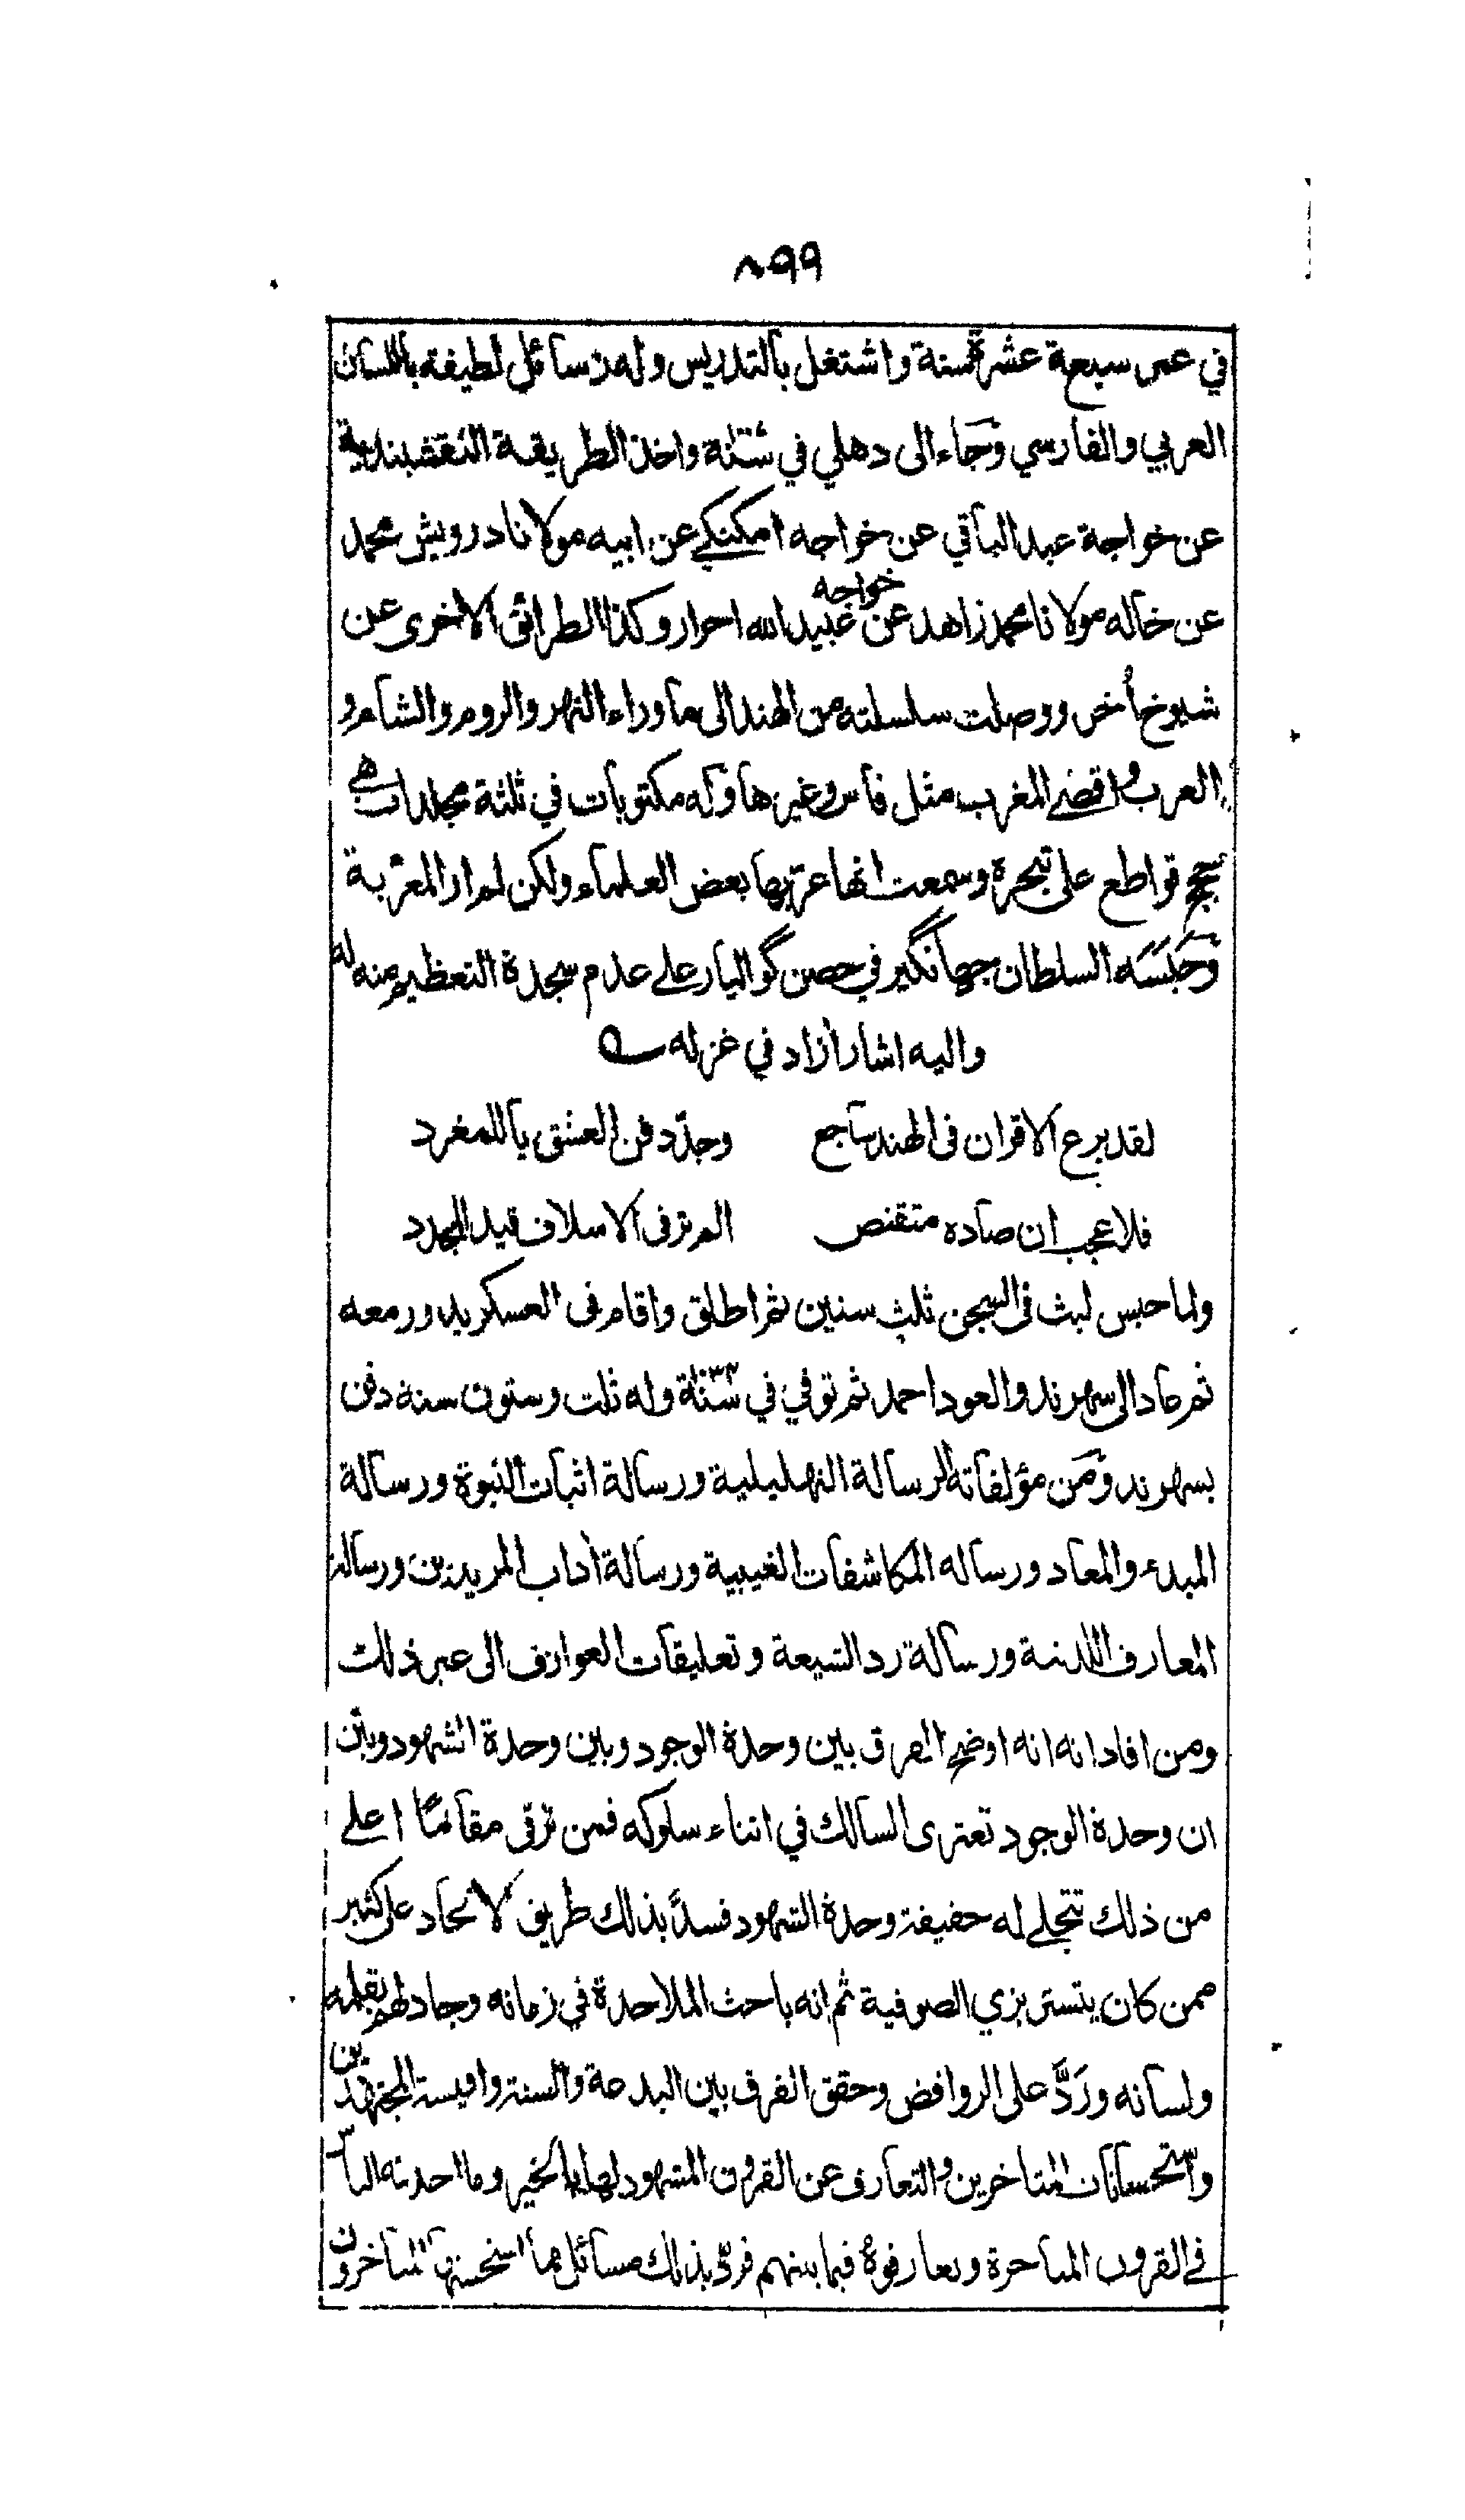 ٨٩٩
في عمر سبعة عشرة سنة واشتغل بالتدريس وله رسائل لطيفه باللسان
العربي والفارسي وجاء الى دهلي في واخذ الطريقة النقشبندية
عن خواجة عبد الباقي عن خواجه امكنكے عن ابيه مولانا درويش محمد
عن خاله مولانا محمد زاهد عن خواجه عبيد الله احرار وكذا الطرائق الاخرى عن
شيوخ أخر ووصلت سلسلته من الهند الى ماوراء النهر والروم والشام و
العرب واقصے المغرب مثل فاس وغيرها وله مكتوبات في ثلثة مجلدات هي
حجج قواطع على تبحره وسمعت انها عرّبها بعض العلماء ولكن لم ار المعرّبة
وحبسه السلطان جهانگير في حصن گواليار على عدم سجدة التعظيم منه له
واليه اشار أزاد في غزله
لقد برع الاقران فى الهند ساجع وجدّد فن العشق يا للمغرد
فلا عجب ان صاده متقنص الم تر فى الاسلاف قيد المجدد
ولما حبس لبث فى السجن ثلث سنين ثم اطلق واقام فى العسكر يدور معه
ثم عاد الى سهرند والعود احمد ثم توفي في وله ثلث وستون سنة دفن
بسهرند ومن مؤلفاته الرسالة التهليلية ورسالة اثبات النبوة ورسالة
المبدء والمعاد ورساله المكاشفات الغيبية ورسالة أداب المريدين ورسالة
المعارف اللدنية ورسالة رد الشيعة وتعليقات العوارف الى غير ذلك
ومن افاداته انه اوضح الفرق بين وحدة الوجود وبين وحدة الشهود وبيّن
ان وحدة الوجود تعترى السالك في اثناء سلوكه فمن ترقى مقامًا اعلے
من ذلك تتجلے له حقيقة وحدة الشهود فسدّ بذلك طريق الالحاد على كثير
ممن كان يتستر بزي الصوفية ثم انه باحث الملاحدة في زمانه وجادلهم بقلمه
ولسانه وردّ على الروافض وحقق الفرق بين البدعة والسنة واقيسة المجتهدين
واستحسانات المتاخرين والتعارف عن القرون المشهود لها بالخير وما احدثه الناس
في القرون المتاخرة وتعارفوه فيما بينهم فردّ بذلك مسائل مما استحسنها المتاخرون